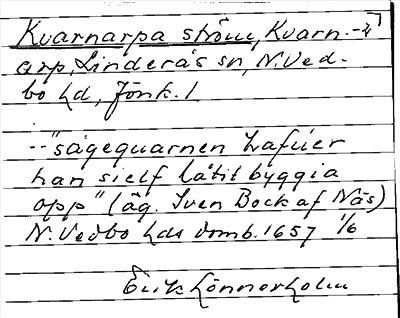 Kvarnarpa ström, Kvarn-
arp, Linderås sn, N. Ved-
bo hd, Jönk. l
--"sågequarnen hafuer
han sielf låtit byggia
opp" (äg. Sven Bock af Näs)
N. Vedbo hds domb. 1657 1/6
Erik Lönnerholm